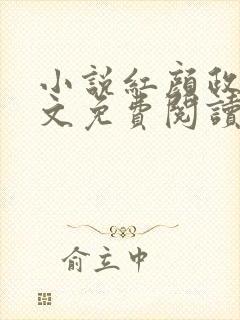 小説紅顔政
文免費閱讀
俞立中